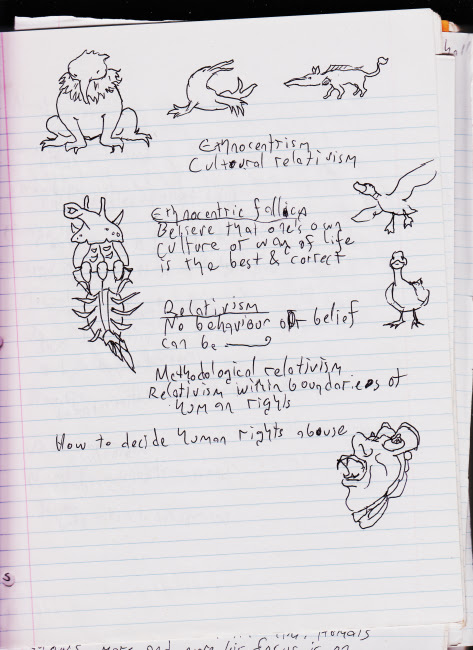 Ethnocentrism
Cultural relativism
Ethnocentric fallicy
Believe that one's own
culture or way of life
is the best & correct
Relativism
No behaviour or belief
can be
Methodological relativism
Relativism within boundaries of
human rights
How to decide human rights abouse
s